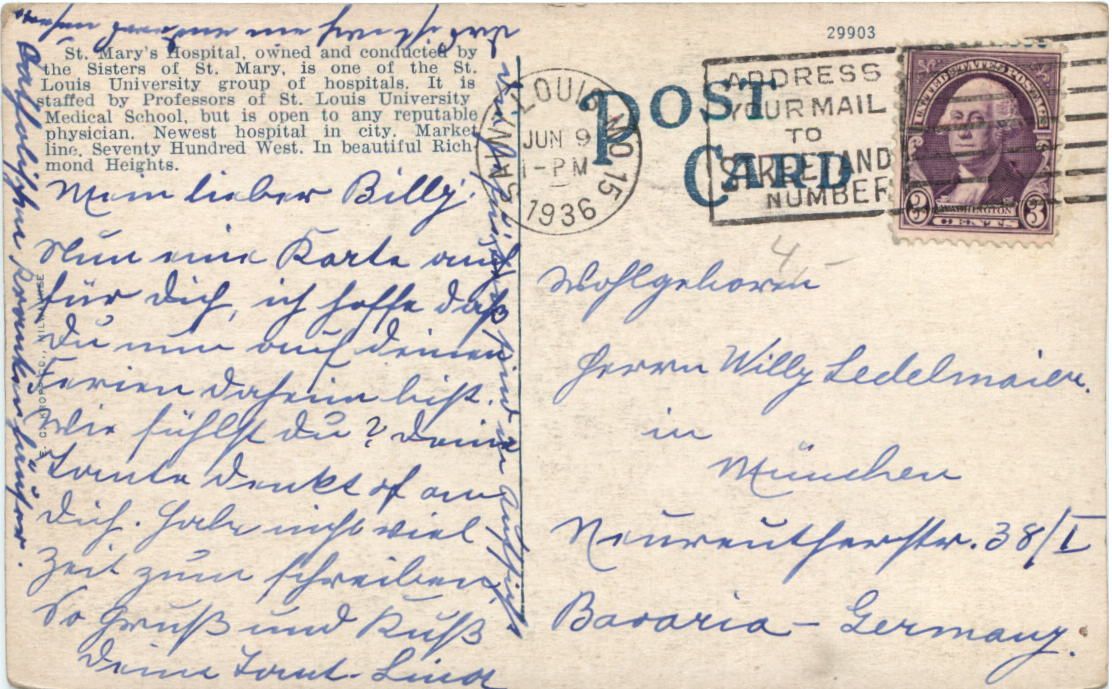 St. Mary's Hospital, owned and conducted by
the Sisters of St. Mary, is one of the St.
Louis University group of hospitals. It is
staffed by Professors of St. Louis University
Medical School, but is open to any reputable
physician. Newest hospital in city. Market
line, Seventy Hundred West. In beautiful Rich-
mond Heights.
Mein lieber Billy!
Nun eine Karte auch
für Dich, ich hoffe daß
Du nun auf deinen
Ferien daheim bist.
Wie fühlst Du? Deine
Tante denkt oft an
Dich. Habe nicht viel
Zeit zum schreiben,
So Gruß und Kuß
Deine Tant. Lina
sind in Aufsicht
Katholischen Krankenhäuser.
29903
POST
CARD
SAINT LOUIS, MO. 15
JUN 9
1-PM
1936
ADDRESS
YOUR MAIL
TO
STREET AND
NUMBER
UNITED STATES POSTAGE
WASHINGTON
3 3
CENTS
4/-
Wohlgeboren
Herrn Willy Ledelmaier.
in
München
Neureutherstr. 38/I
Bavaria – Germany.